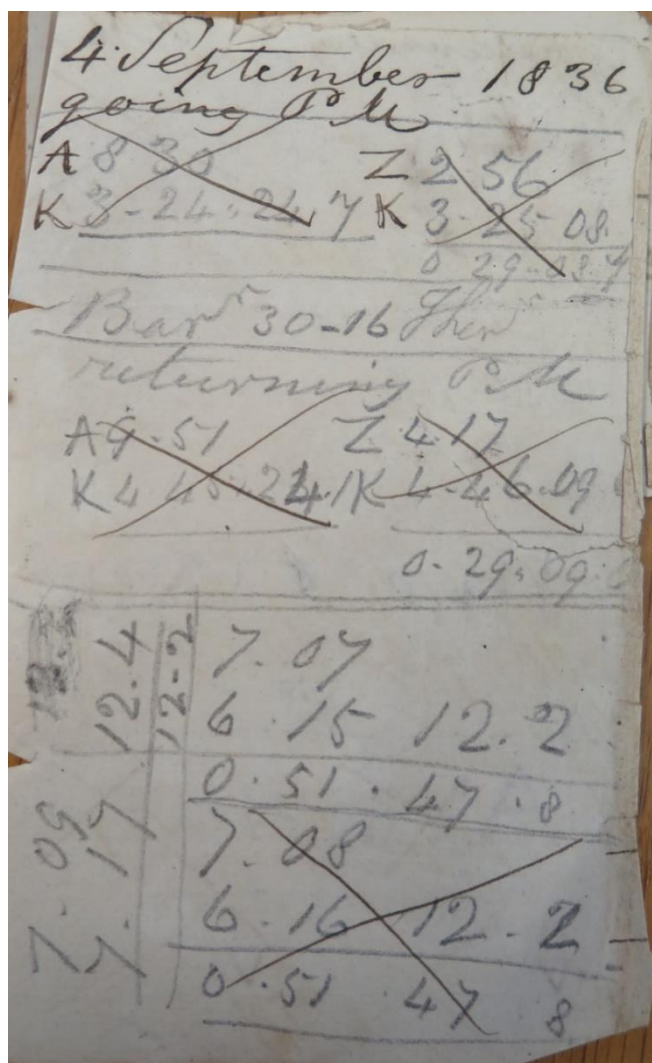 4. September 1836
going PM
A 8 30 Z 2 56
K 3-24.24 7 K 3-25 08.
0 29-08.7
Bar^r 30-16 Ther
returning PM
A 9.51 Z 4.17
K 4 45.24.1 K 4-46.09
0-29.09.
12.4
12-2
7.07
6.15 12.2
0.51.47.8
7.08
6.16 12.2
0.51.47 8
7.09
7.17